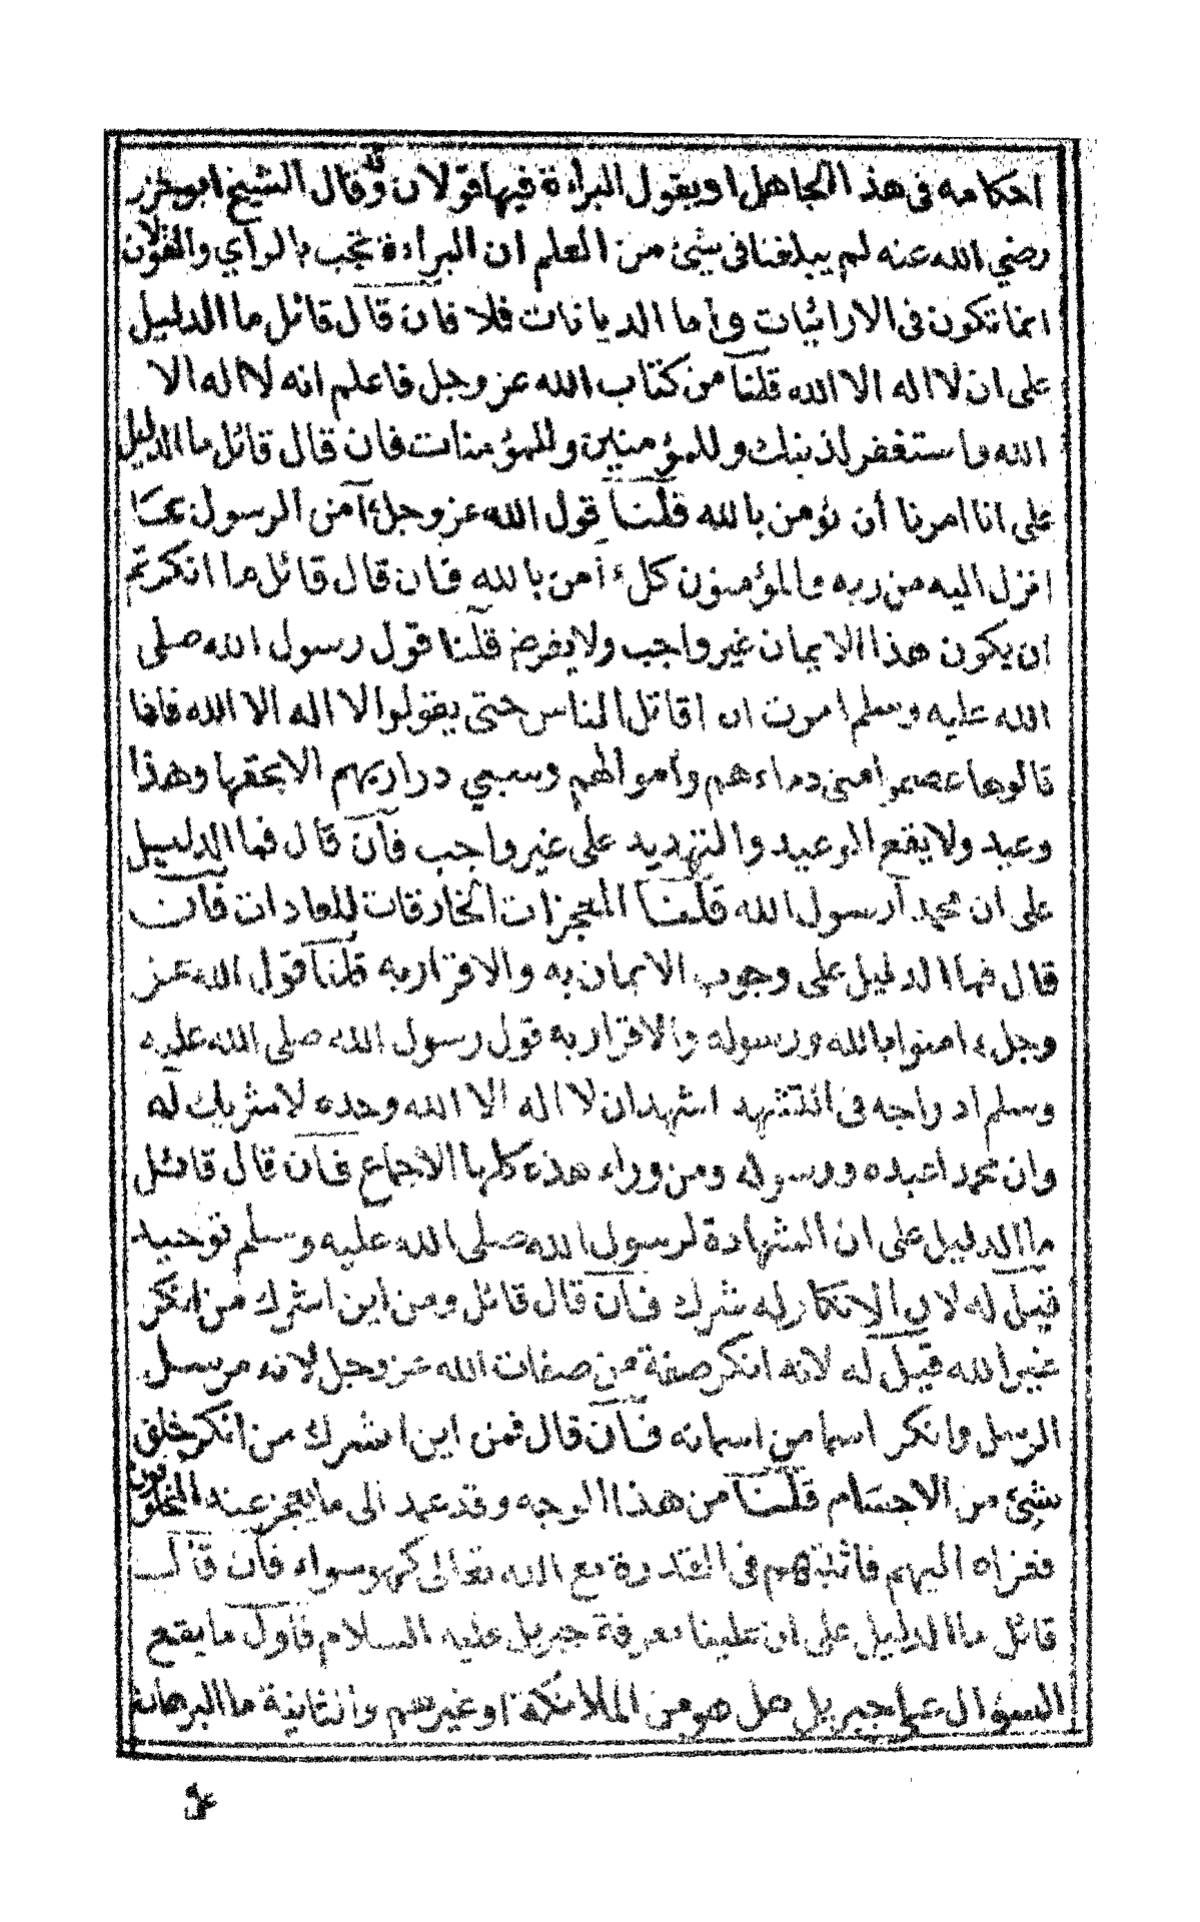 احكامه فى هذ الجاهل او يقول البراءة فيها قولان وقد قال الشيخ ابو خزر
رضي الله عنه لم يبلغنا فى شئ من العلم ان البراءة تجب بالرأي والقولان
انما تكون فى الارائيات واما الديانات فلا فان قال قائل ما الدليل
على ان لا اله الا الله قلنا من كتاب الله عز وجل فاعلم انه لا اله الا
الله واستغفر لذنبك وللمؤمنين وللمؤمنات فان قال قائل ما الدليل
على انا امرنا أن نؤمن بالله قلنا قول الله عز وجل ءآمن الرسول بما
انزل اليه من ربه والمؤمنون كل ءامن بالله فان قال قائل ما انكرتم
ان يكون هذا الايمان غير واجب ولا يفرض قلنا قول رسول الله صلى
الله عليه وسلم امرت ان اقاتل الناس حتى يقولوا لا اله الا الله فاذا
قالوها عصموا منى دماءهم واموالهم وسبي دراريهم الا بحقها وهذا
وعيد ولا يقع الوعيد والتهديد على غير واجب فان قال فما الدليل
على ان محمد رسول الله قلنا المعجزات الخارقات للعادات فان
قال فما الدليل على وجوب الايمان به والاقرار به قلنا قول الله عز
وجل ءامنوا بالله ورسوله والاقرار به قول رسول الله صلى الله عليه
وسلم ادراجه فى التشهد اشهد ان لا اله الا الله وحده لا شريك له
وان محمدا عبده ورسوله ومن وراء هذه كلها الاجماع فان قال قائل
ما الدليل على ان الشهادة لرسول الله صلى الله عليه وسلم توحيد
قيل له لان الانكار له شرك فان قال قائل ومن اين اشرك من انكر
غير الله قيل له لانه انكر صفة من صفات الله عز وجل لانه مرسل
الرسل وانكر اسما من اسمائه فان قال فمن اين اشرك من انكر خلق
شئ من الاجسام قلنا من هذا الوجه وقد عمد الى ما يعجز عنه المخلوقون
فعزاه اليهم فاثبتهم فى القدرة مع الله تعالى كهو سواء فان قال
قائل ما الدليل على ان علينا معرفة جبريل عليه السلام فأول ما يقع
السؤال على جبريل هل هو من الملائكة او غيرهم والثانية ما البرهان
على